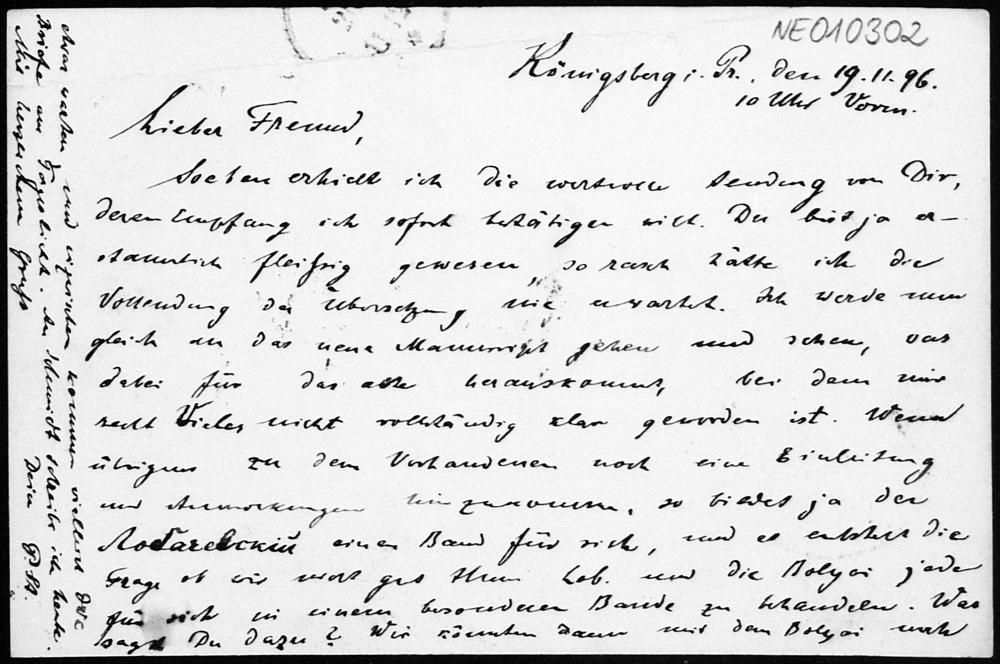 NE010302
Königsberg i. Pr., den 19.11.96.
10 Uhr Vorm.
Lieber Freund,
Soeben erhielt ich die wertvolle Sendung von Dir,
deren Empfang ich sofort bestätigen will. Du bist ja er-
staunlich fleißig gewesen, so rasch hätte ich die
Vollendung der Übersetzung nie erwartet. Ich werde nun
gleich an das neue Manuscript gehen und sehen, was
dabei für das alte herauskommt, bei dem mir
recht Vieles nicht vollständig klar geworden ist. Wenn
übrigens zu dem Vorhandenen noch eine Einleitung
und Anmerkungen hinzukommen, so bildet ja der
Лобачевский einen Band für sich, und es entsteht die
Frage ob wir nicht gut thun Lob. und die Bolyai jeden
für sich in einem besonderen Bande zu behandeln. Was
sagst Du dazu? Wir könnten dann mit dem Bolyai noch
etwas warten und inzwischen kommen vielleicht die
Briefe ans Tageslicht. An Schmidt schreibe ich heute.
Mit herzlichem Gruß
Dein P. St.